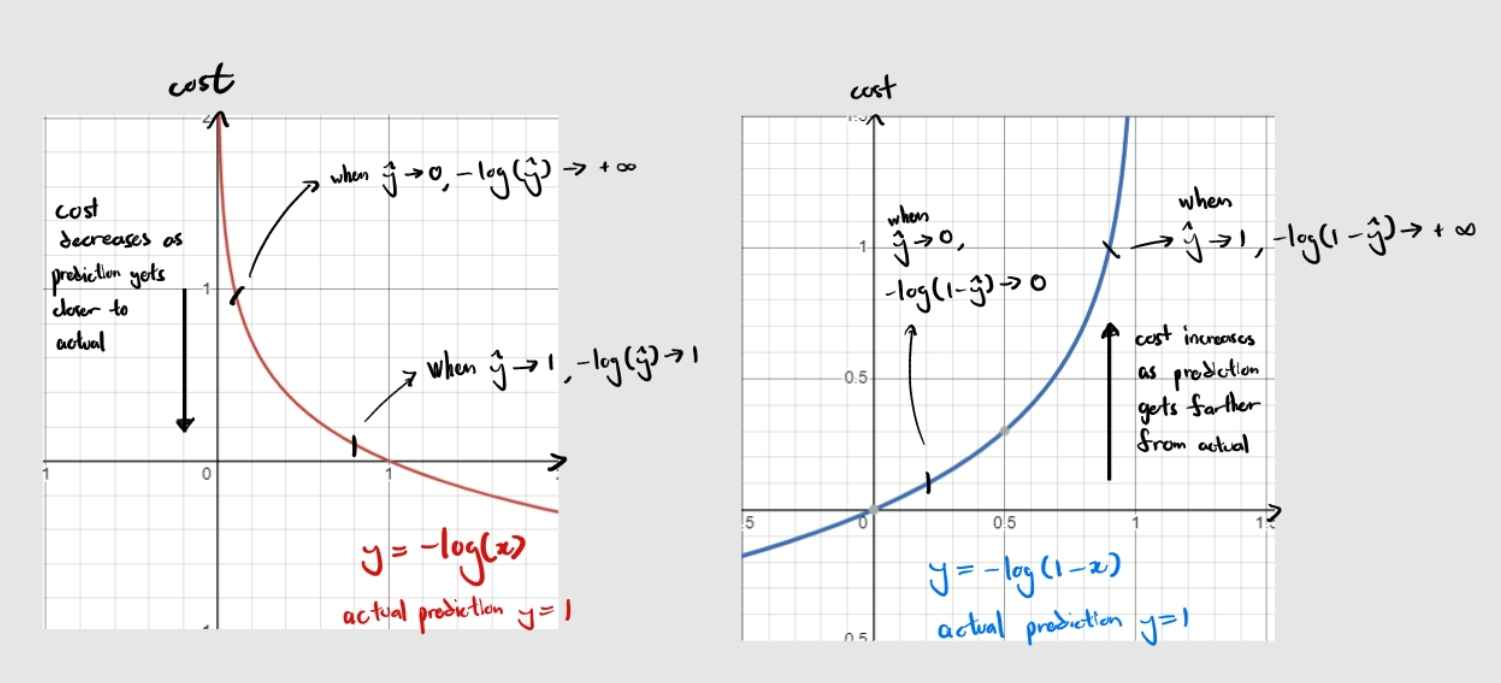 cost
when ŷ → 0, -log(ŷ) → + ∞
cost
decreases as
prediction gets
closer to
actual
1
When ŷ → 1, -log(ŷ) → 1
1
0
1
y = -log(x)
actual prediction y = 1
cost
when
ŷ → 0,
-log(1-ŷ) → 0
when
ŷ → 1, -log(1-ŷ) → + ∞
1
cost increases
as prediction
gets farther
from actual
0.5
5
0
0.5
1
y = -log(1-x)
actual prediction y=1
0.5